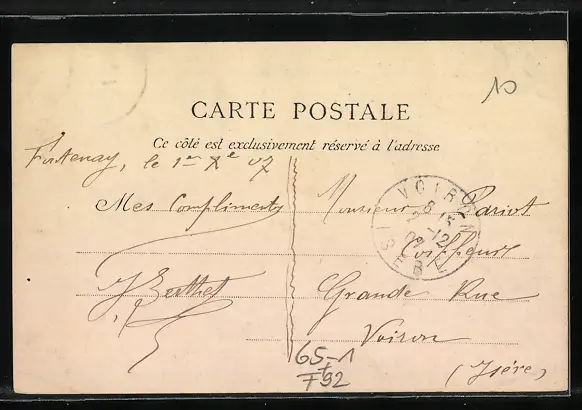 10
CARTE POSTALE
Ce côté est exclusivement réservé à l'adresse
Fontenay, le 1er Xe 07
Mes Compliments
Berthet
Monsieur Pariot
Coiffeur
Grande Rue
Voiron
(Isère)
VOIRON
ISERE
65-1
F92